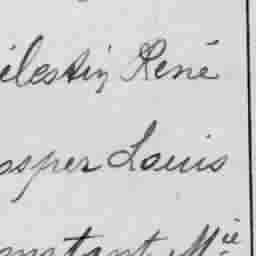 élestin René
osper Louis
onstant M^ie